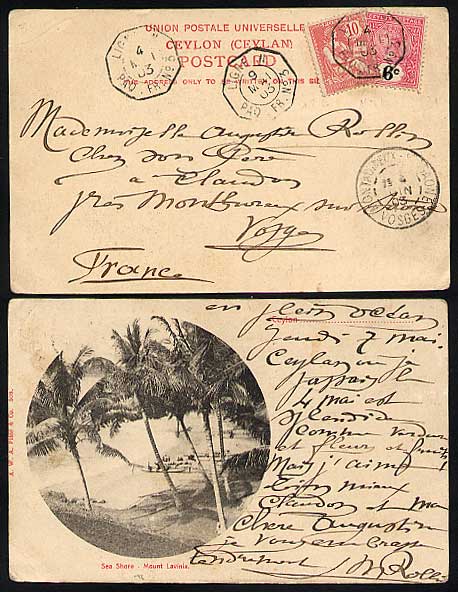 UNION POSTALE UNIVERSELLE
CEYLON (CEYLAN)
POSTCARD
THE ADDRESS ONLY TO BE WRITTEN ON THIS SIDE
LIGNE N
4
MAI
03
PAQ. FR. Nº 5
LIGNE N
9
MAI
03
PAQ. FR. Nº 5
10
4
03
6c
Mademoiselle Augustine Rollin
Chez son Père
à Claudon
près Monthureux sur
Vosges
France
JUIN
03
VOSGES
en plein océan
Ceylon
Jeudi 7 mai.
Ceylan où je
passais le
4 mai est
splendide
comme verdure
et fleurs et fruits
Mais j'aime
bien mieux
Claudon et ma
chère Augustine
je vous embrasse
tendrement
Sea Shore - Mount Lavinia.
A. W. A. Plâté & Co.